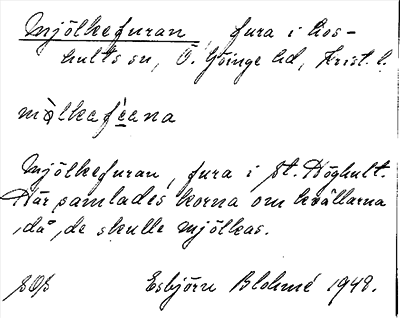 Mjölkefuran, fura i Hos-
hults sn, Ö. Göinge hd, Krist. l.
Mjölkefuran, fura i St. Höghult.
Där samlades korna om kvällarna
,då, de skulle mjölkas.
Esbjörn Blohmé 1948.